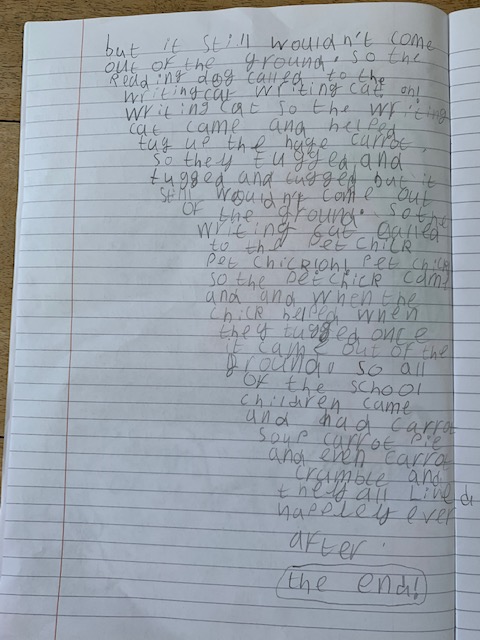 but it still wouldn't come
out of the ground. so the
Reading dog called to the
writing cat writing cat oh!
writing cat so the writing
cat came and helped
tug up the huge carrot.
so they tugged and
tugged and tugged but it
still wouldn't come out
of the ground. so the
writing cat called
to the pet chick
pet chick oh! pet chick
so the pet chick came
and and when the
chick helped when
they tugged once
it came out of the
ground. so all
of the school
children came
and had carrot
soup carrot pie
and even carrot
crumble and
they all lived
happeley ever
after.
the end!